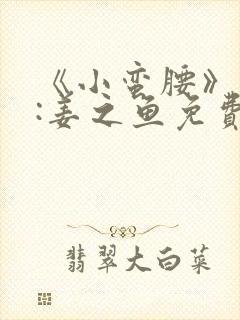 《小蛮腰》
:姜之鱼免费
翡翠大白菜